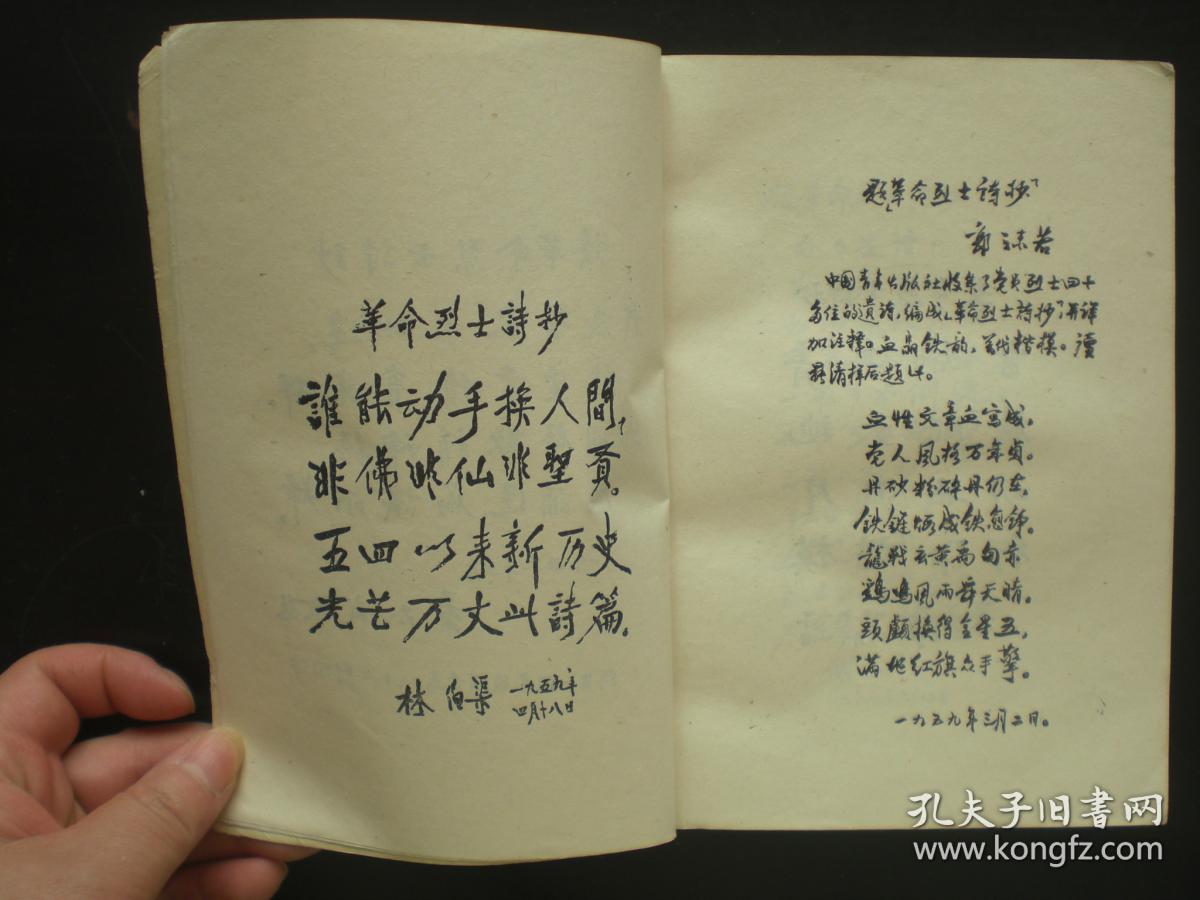 革命烈士詩抄
誰能动手換人間，
非佛非仙非聖賢。
五四以来新历史
光芒万丈此詩篇。
林伯渠
一九五九年
四月十八日
题「革命烈士詩抄」
郭沫若
中国青年出版社收集了党员烈士四十
多位的遺詩，編成「革命烈士詩抄」，并詳
加注釋。血晶铁韵，万代楷模。讀
清样后题此。
血性文章血寫成，
党人風格万年貞。
丹砂粉碎丹仍在，
铁鏈煅成铁愈錚。
龍戰玄黃禹甸赤
鷄鳴風雨舜天晴。
頭顱換得金星五，
滿地红旗众手擎。
一九五九年三月二日。
孔夫子旧書网
www.kongfz.com